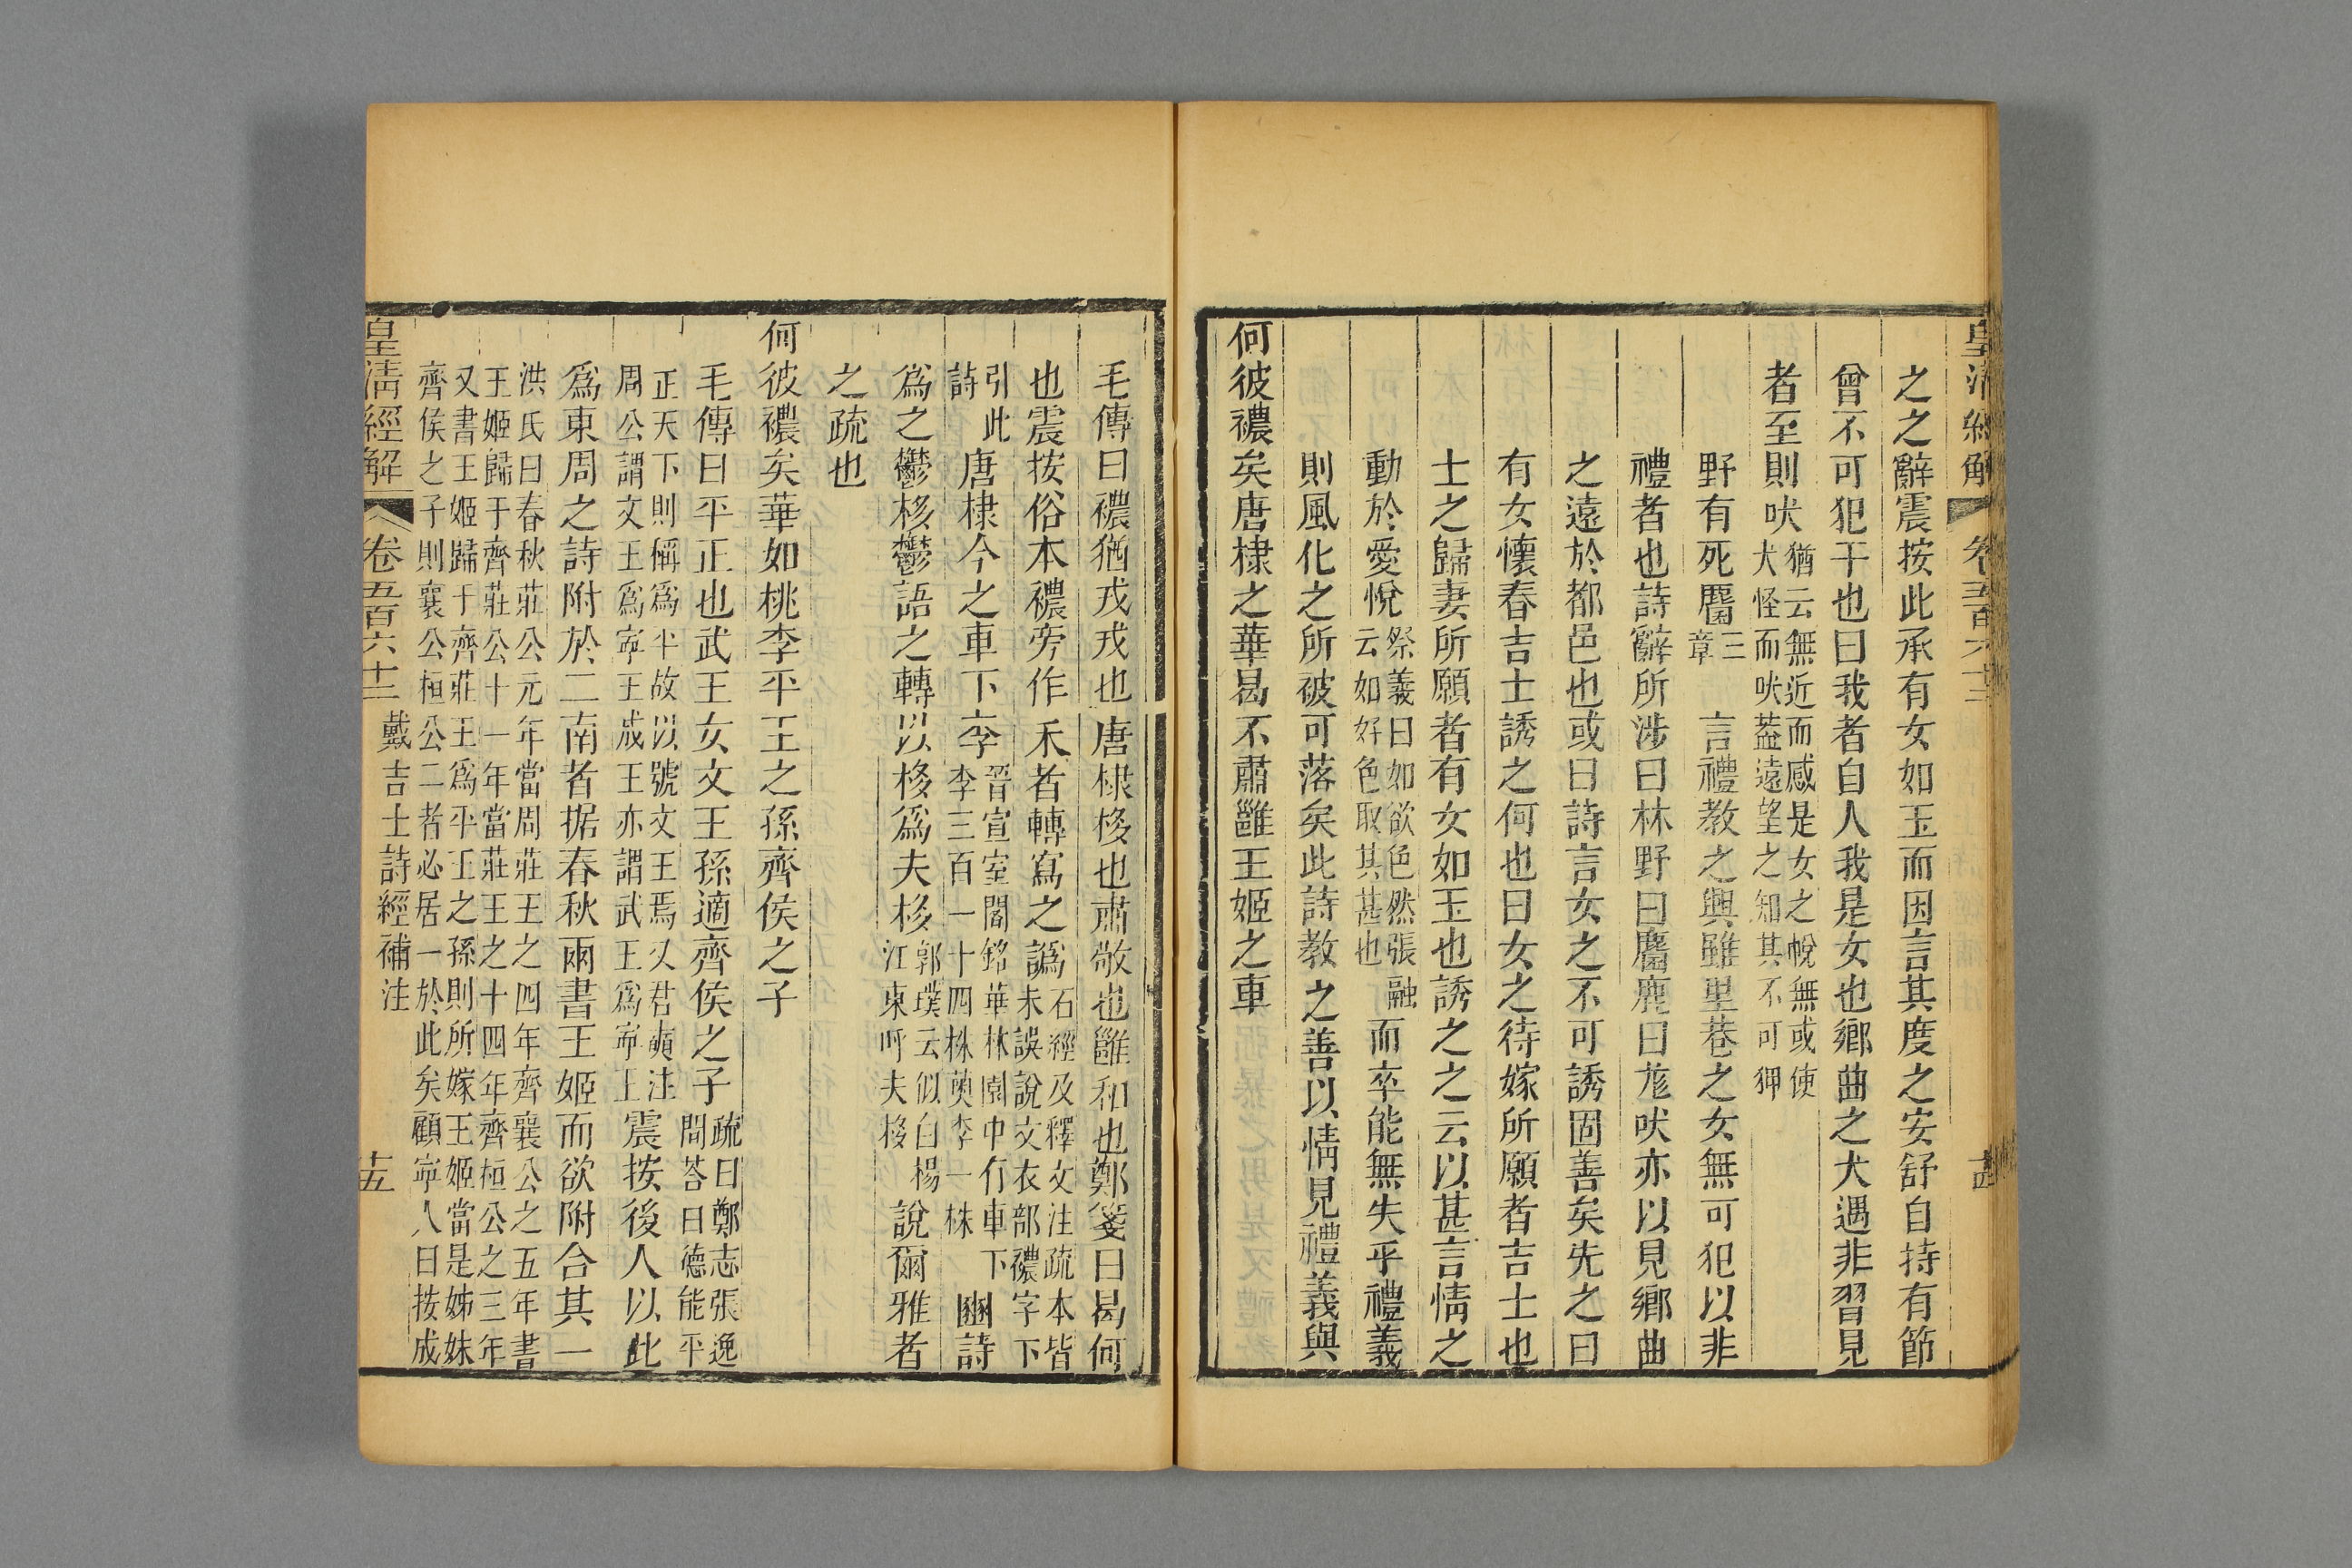 皇清經解 卷五百六十二 十四
之之辭震按此承有女如玉而因言其度之安舒自持有節
曾不可犯干也曰我者自人我是女也鄉曲之犬遇非習見
者至則吠
猶云無近而感是女之帨無或使
犬怪而吠葢遠望之知其不可狎
野有死麕
三
章
言禮教之興雖里巷之女無可犯以非
禮者也詩辭所涉曰林野曰麕鹿曰尨吠亦以見鄉曲
之遠於都邑也或曰詩言女之不可誘固善矣先之曰
有女懷春吉士誘之何也曰女之待嫁所願者吉士也
士之歸妻所願者有女如玉也誘之之云以甚言情之
動於愛悅
祭義曰如欲色然張融
云如好色取其甚也
而卒能無失乎禮義
則風化之所被可落矣此詩教之善以情見禮義與
何彼襛矣唐棣之華曷不肅雝王姬之車
毛傳曰襛猶戎戎也唐棣栘也肅敬也雝和也鄭箋曰曷何
也震按俗本襛旁作禾者轉寫之譌
石經及釋文注疏本皆
未誤說文衣部襛字下
引此
詩
唐棣今之車下李
晉宣室閣銘華林園中有車下
李三百一十四株薁李一株
豳詩
爲之鬱栘鬱語之轉以栘爲夫栘
郭璞云似白楊
江東呼夫栘
說爾雅者
之疏也
何彼襛矣華如桃李平王之孫齊侯之子
毛傳曰平正也武王女文王孫適齊侯之子
疏曰鄭志張逸
問荅曰德能平
正天下則偁爲平故以號文王焉又君奭注
周公謂文王爲寧王成王亦謂武王爲寧王
震按後人以此
爲東周之詩附於二南者据春秋兩書王姬而欲附合其一
洪氏曰春秋莊公元年當周莊王之四年齊襄公之五年書
王姬歸于齊莊公十一年當莊王之十四年齊桓公之三年
又書王姬歸于齊莊王爲平王之孫則所嫁王姬當是姊妹
齊侯之子則襄公桓公二者必居一於此矣顧寧人曰按成
皇清經解 卷五百六十二 戴吉士詩經補注 十五